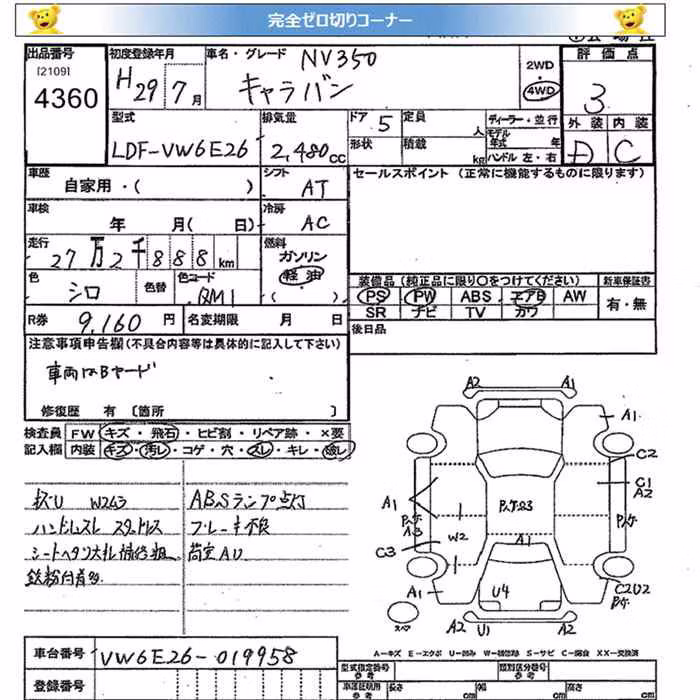 完全ゼロ切りコーナー
出品番号
[2109]
4360
初度登録年月
H29年7月
車名・グレード
NV350
キャラバン
2WD
・
4WD
評価点
3
外装 内装
D C
型式
LDF-VW6E26
排気量
2,480cc
ドア 5
定員 人
形状
積載 kg
ディーラー・並行
モデル年式 年
ハンドル 左・右
車歴
自家用・( )
シフト
AT
セールスポイント (正常に機能するものに限ります)
車検
年 月( 日)
冷房
AC
走行
27万2千888km
燃料
ガソリン
軽油
( )
色
シロ
色替
色コード
QM1
装備品 (純正品に限り○をつけてください)
PS PW ABS エアB AW
SR ナビ TV カワ
新車保証書
有・無
R券 9,160円
名変期限 月 日
後日品
注意事項申告欄(不具合内容等は具体的に記入して下さい)
車両はBヤード
修復歴 有 〔箇所 〕
検査員 FW キズ・飛石・ヒビ割・リペア跡・×要
記入欄 内装 キズ・汚レ・コゲ・穴・スレ・キレ・破レ
W2 3
ABSランプ点灯
ハンドルスレ スタッドレス
ブレーキ不良
荷室AU
A2 A1
A1
C2
C1
A2
A1
A3
W2
C3
A1
U4
A1
C2U2
A2 U1 A2
スペア
A－キズ E－エクボ U－凹み W－補修跡 S－サビ C－腐食 XX－交換済
車台番号
VW6E26-019958
登録番号
型式指定番号
参考
類別区分番号
参考
車護証明用
参考
長さ cm
幅 cm
高さ cm